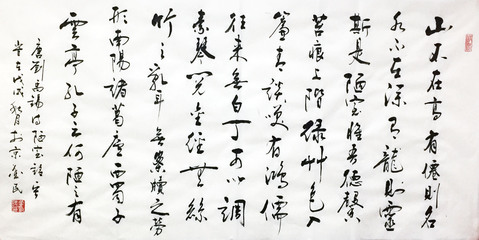 山不在高有僊則名
水不在深有龍則靈
斯是陋室惟吾德馨
苔痕上階綠艸色入
簾青談笑有鴻儒
往來無白丁可以調
素琴閱金經無絲
竹之亂耳無案牘之勞
形南陽諸葛廬西蜀子
雲亭孔子云何陋之有
唐劉禹錫詩陋室銘
歲在戊戌秋月於京